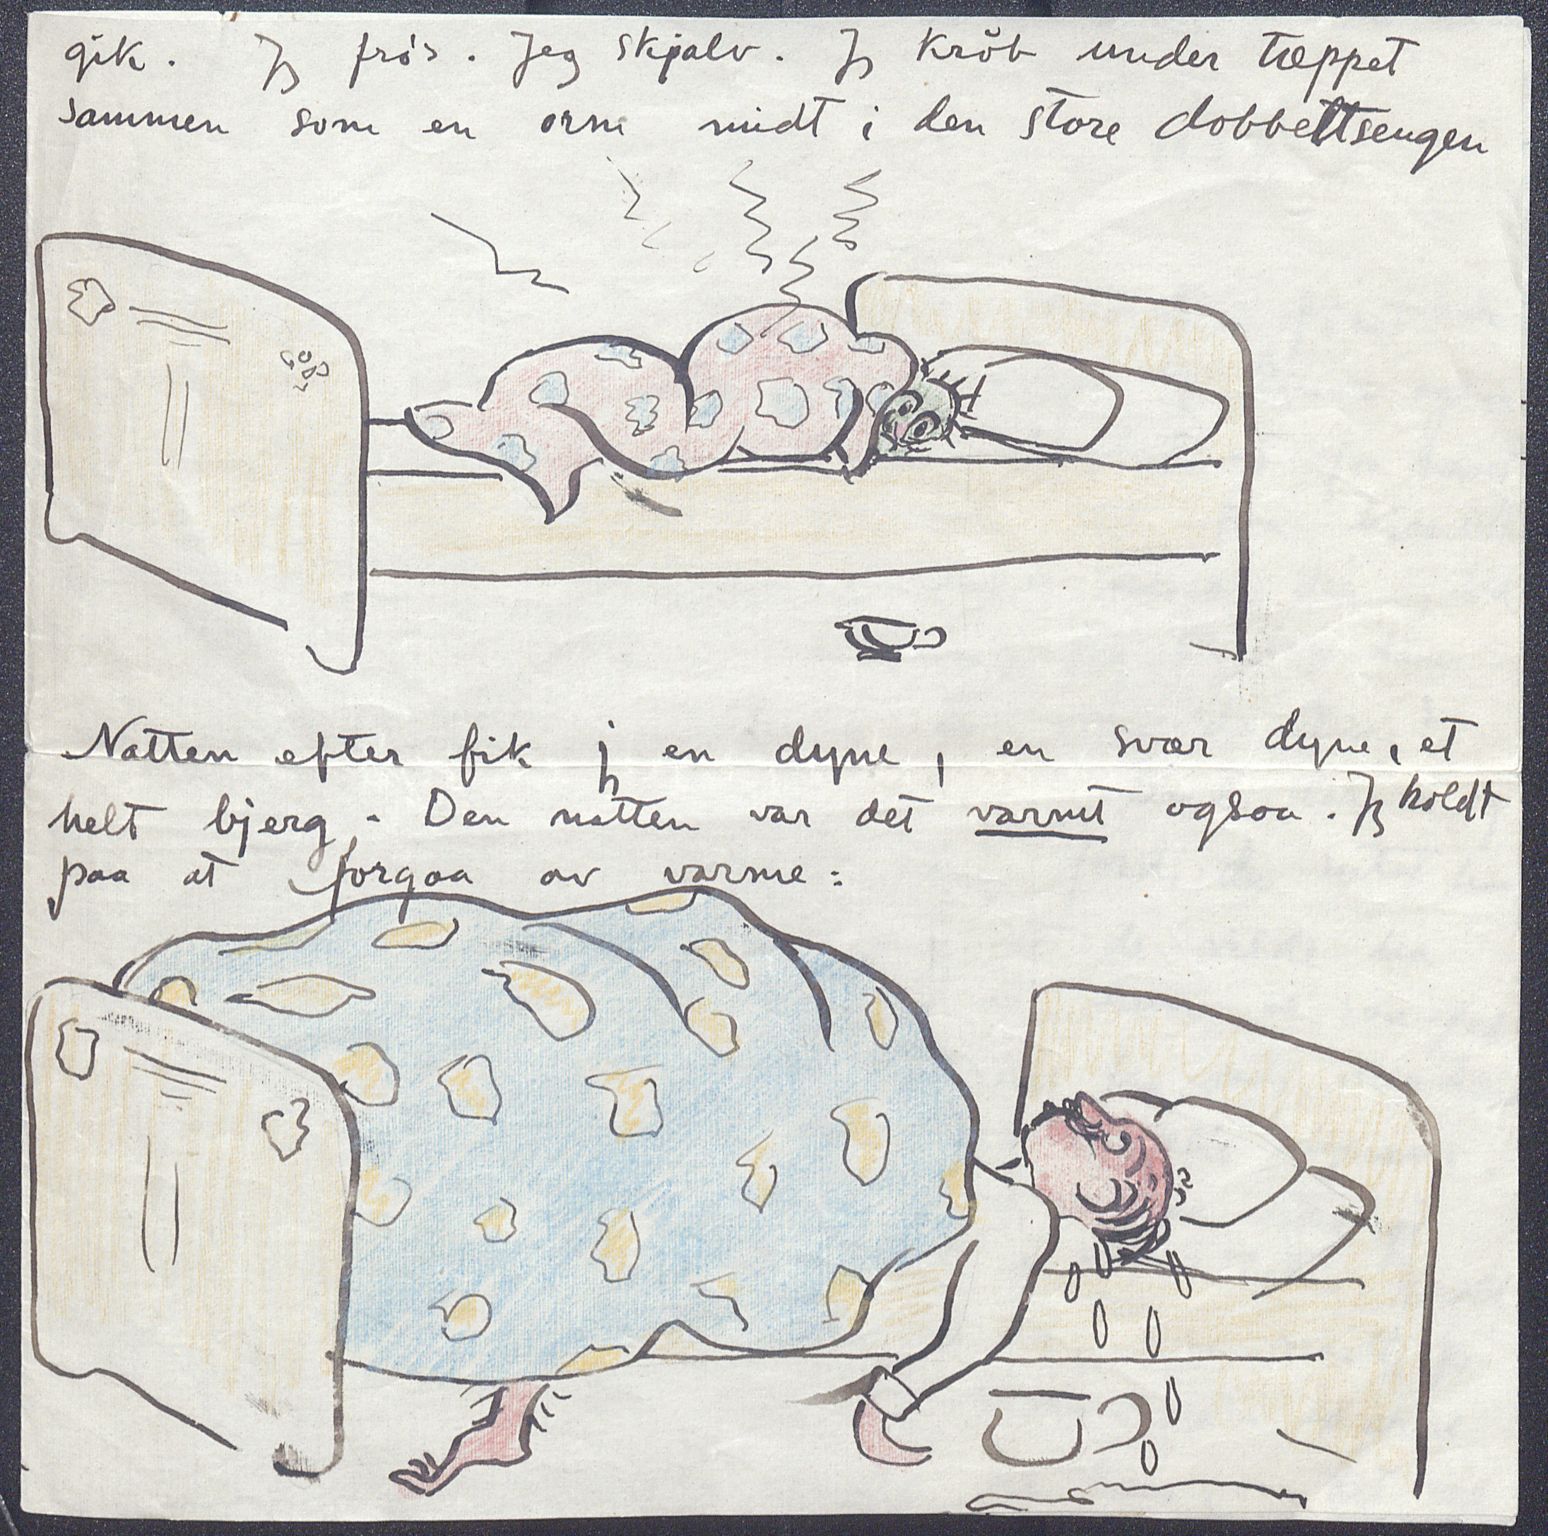 gik. Jg frós. Jeg skjalv. Jg kröb under tæppet
sammen som en orm midt i den store dobbeltsengen
Natten efter fik jg en dyne, en svær dyne, et
helt bjerg. Den natten var det varmt ogsaa. Jg holdt
paa at forgaa av varme: